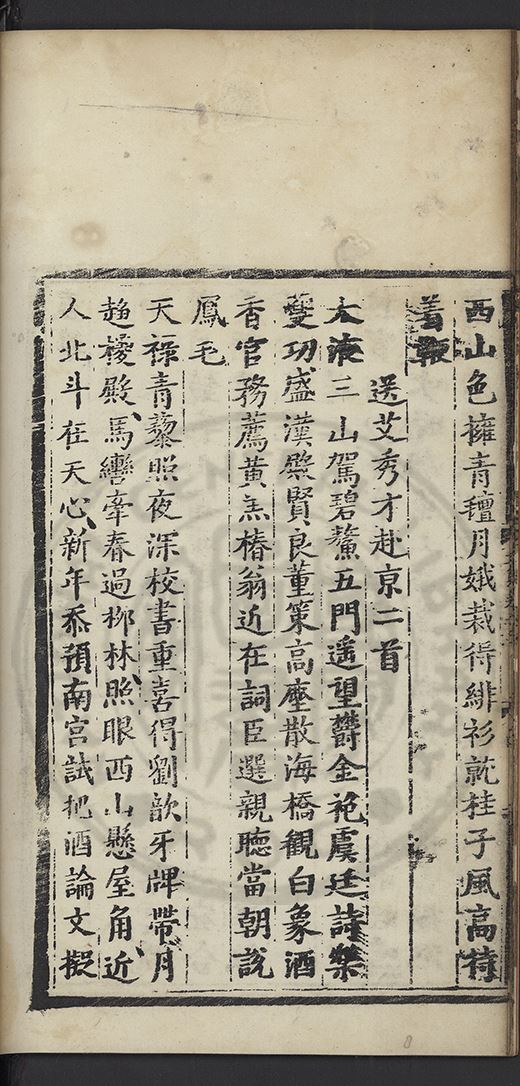 西山色擁青氊月娥栽得緋衫就桂子風高待
着鞭
送艾秀才赴京二首
太液三山駕碧鰲五門遥望欝金袍虞廷詩樂
夔功盛漢㮣賢良董策高塵散海橋觀白象酒
香官務薦黄羔椿翁近在詞臣選親聽當朝説
鳳毛
天禄青藜照夜深校書重喜得劉歆牙牌帶月
趋㯭殿馬轡牽春過柳林照眼西山懸屋角近
人北斗在天心新年忝預南宫試把酒論文擬